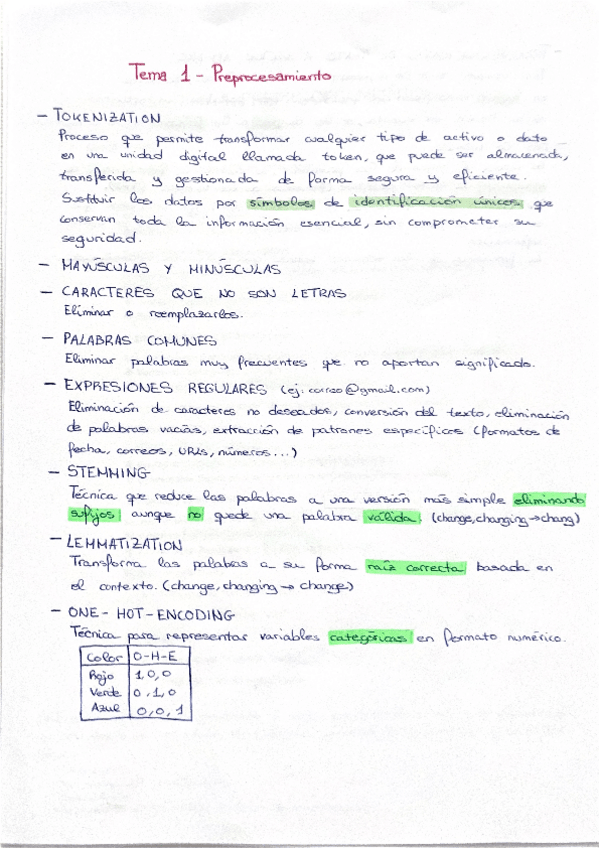 Tema 1 - Preprocesamiento
- TOKENIZATION
Proceso que permite transformar cualquier tipo de activo o dato
en una unidad digital llamada token, que puede ser almacenada,
transferida y gestionada de forma segura y eficiente.
Sustituir los datos por símbolos de identificación únicos que
conservan toda la información esencial, sin comprometer su
seguridad.
- MAYÚSCULAS Y MINÚSCULAS
- CARACTERES QUE NO SON LETRAS
Eliminar o reemplazarlos.
- PALABRAS COMUNES
Eliminar palabras muy frecuentes que no aportan significado.
- EXPRESIONES REGULARES (ej: correo@gmail.com)
Eliminación de caracteres no deseados, conversión del texto, eliminación
de palabras vacías, extracción de patrones específicos (formatos de
fecha, correos, URLs, números...)
- STEMMING
Técnica que reduce las palabras a una versión más simple eliminando
sufijos aunque no quede una palabra válida. (change, changing → chang)
- LEMMATIZATION
Transforma las palabras a su forma raíz correcta basada en
el contexto. (change, changing → change)
- ONE - HOT - ENCODING
Técnica para representar variables categóricas en formato numérico.
Color O-H-E
Rojo 1,0,0
Verde 0,1,0
Azul 0,0,1